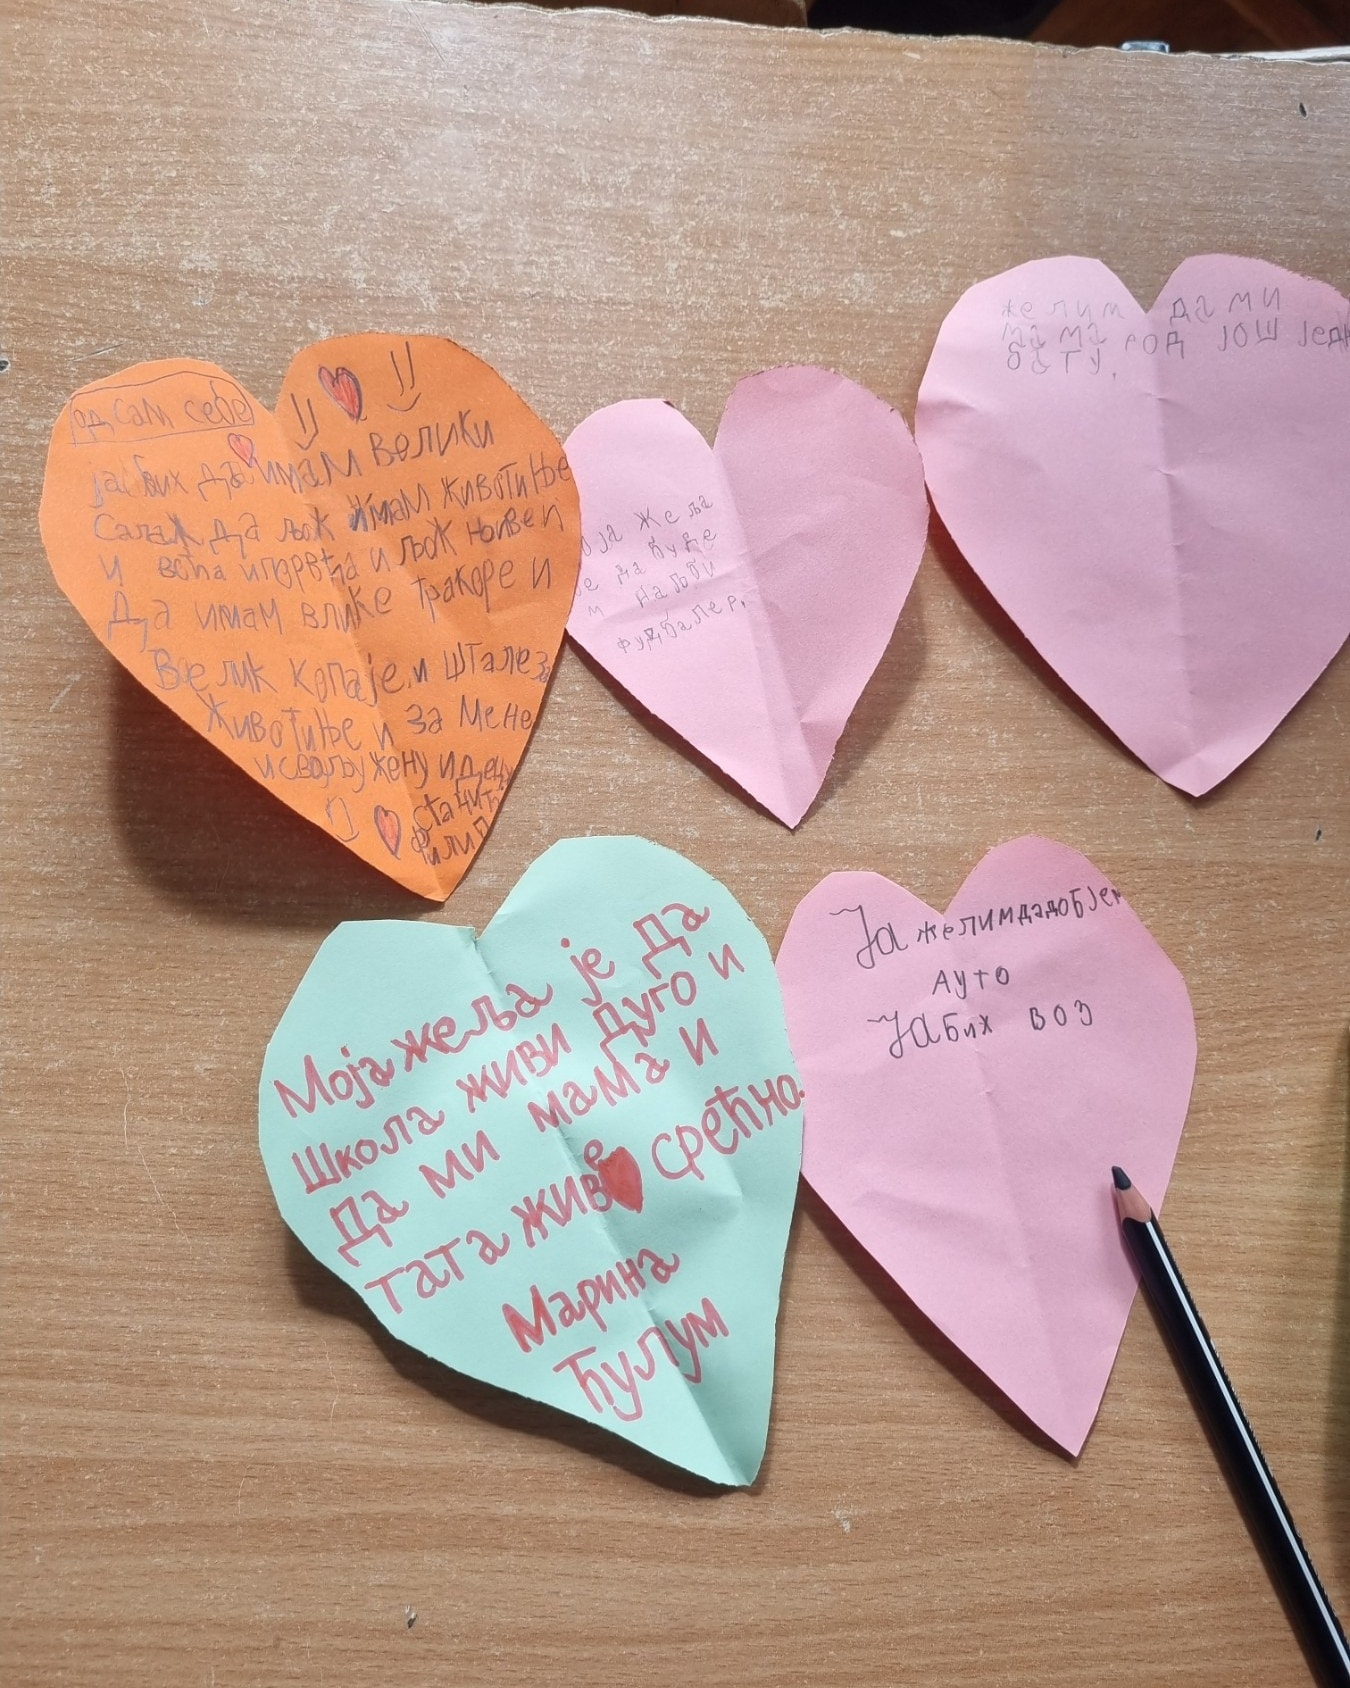 од сам себе
ја бих да имам велики
Салаж да љож имам животиње
и већа игорвћа и љож њиве и
Да имам влике тракоре и
Велик копаје и штале за
Животиње и за мене
и своју жену и децу
Филип
оја жеља
је да буде
м најоби
фудбалер.
желим да ми
мама род још једн
бату.
Моја жеља је да
школа живи дуго и
да ми мама и
тата живе срећно.
Марина
Ћулум
Ја желим да добјем
ауто
Ја бих воз